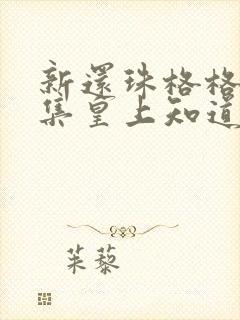 新還珠格格
集皇上知道
茱藜